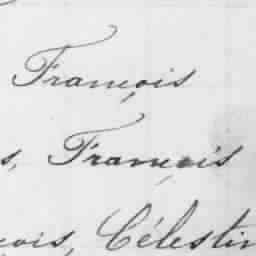 François
s, François
çois, Célestin